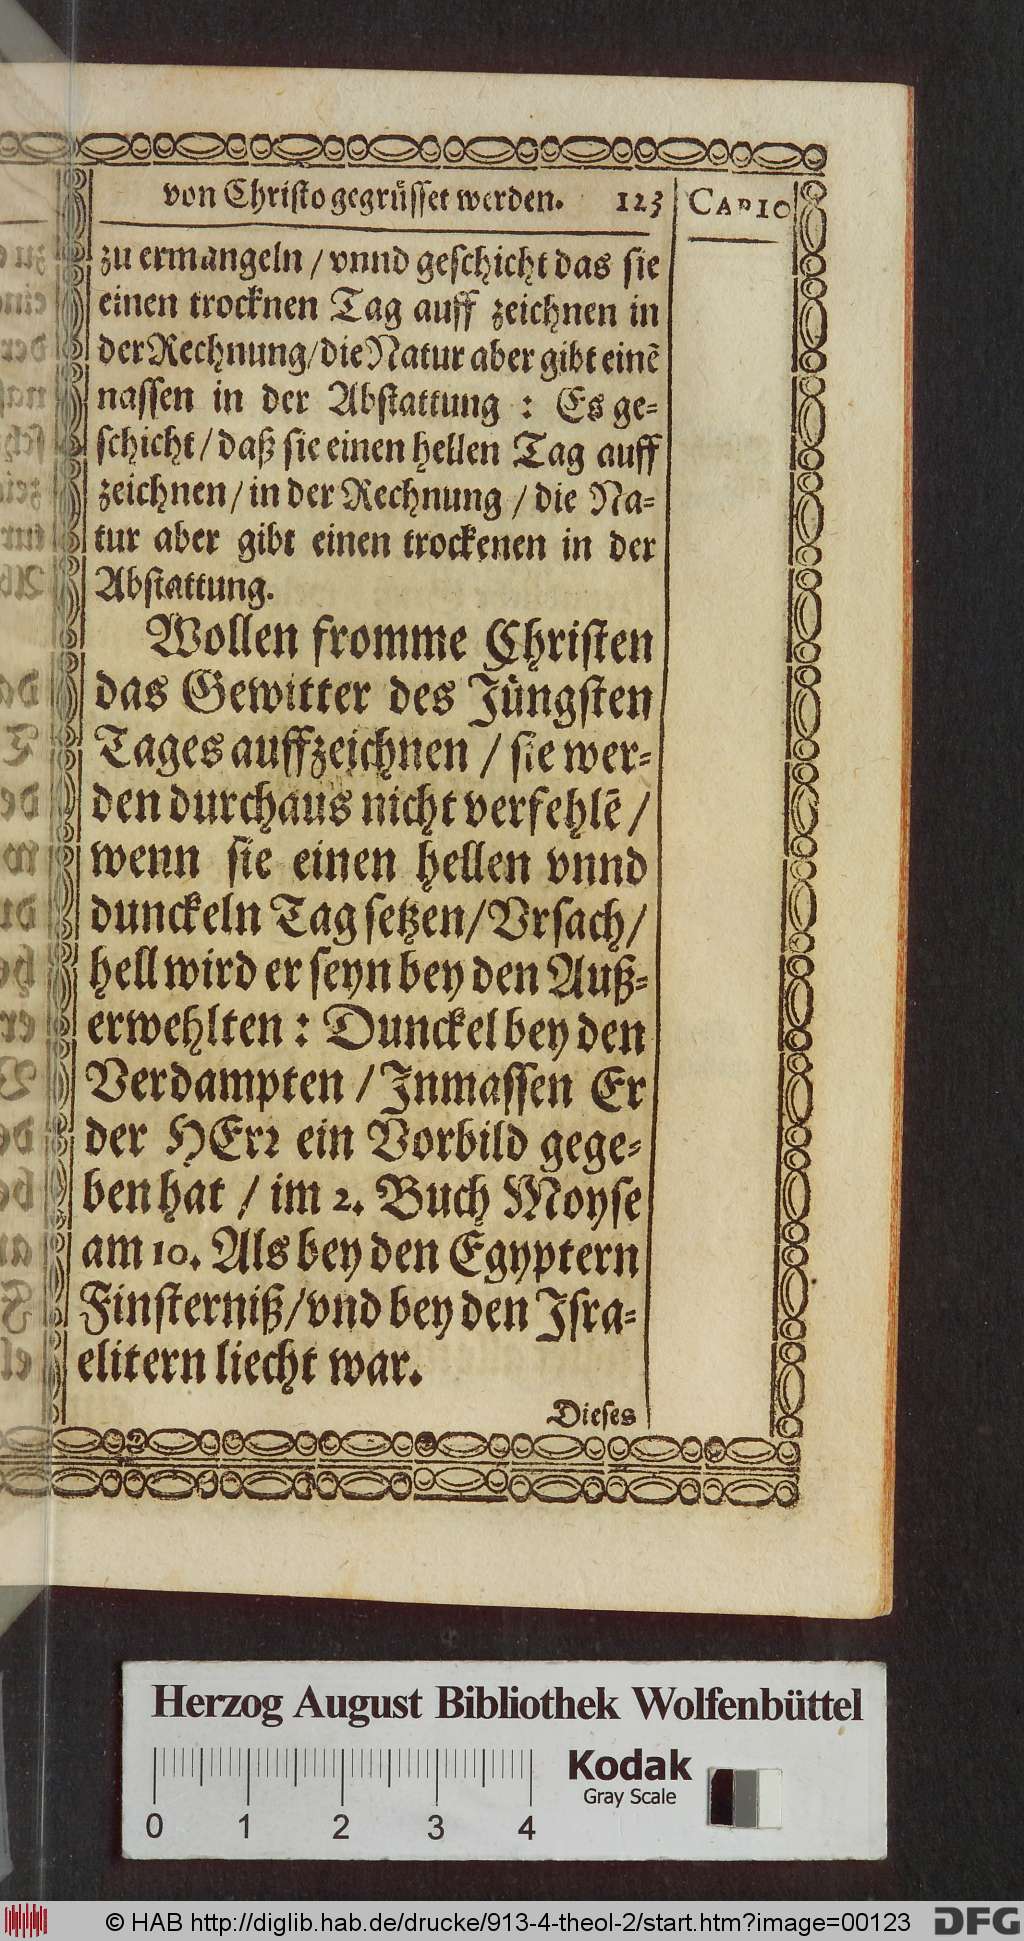 von Christo gegrüsset werden. 123
CAP 10
zu ermangeln / vnnd geschicht das sie
einen trocknen Tag auff zeichnen in
der Rechnung / die Natur aber gibt einẽ
nassen in der Abstattung : Es ge-
schicht / daß sie einen hellen Tag auff
zeichnen / in der Rechnung / die Na-
tur aber gibt einen trockenen in der
Abstattung.
Wollen fromme Christen
das Gewitter des Jüngsten
Tages auffzeichnen / sie wer-
den durchaus nicht verfehlẽ /
wenn sie einen hellen vnnd
dunckeln Tag setzen / Vrsach /
hell wird er seyn bey den Auß-
erwehlten : Dunckel bey den
Verdampten / Jnmassen Er
der HErꝛ ein Vorbild gege-
ben hat / im 2. Buch Moyse
am 10. Als bey den Egyptern
Finsterniß / vnd bey den Jsra-
elitern liecht war.
Dieses
Herzog August Bibliothek Wolfenbüttel
Kodak
Gray Scale
0 1 2 3 4
© HAB http://diglib.hab.de/drucke/913-4-theol-2/start.htm?image=00123
DFG